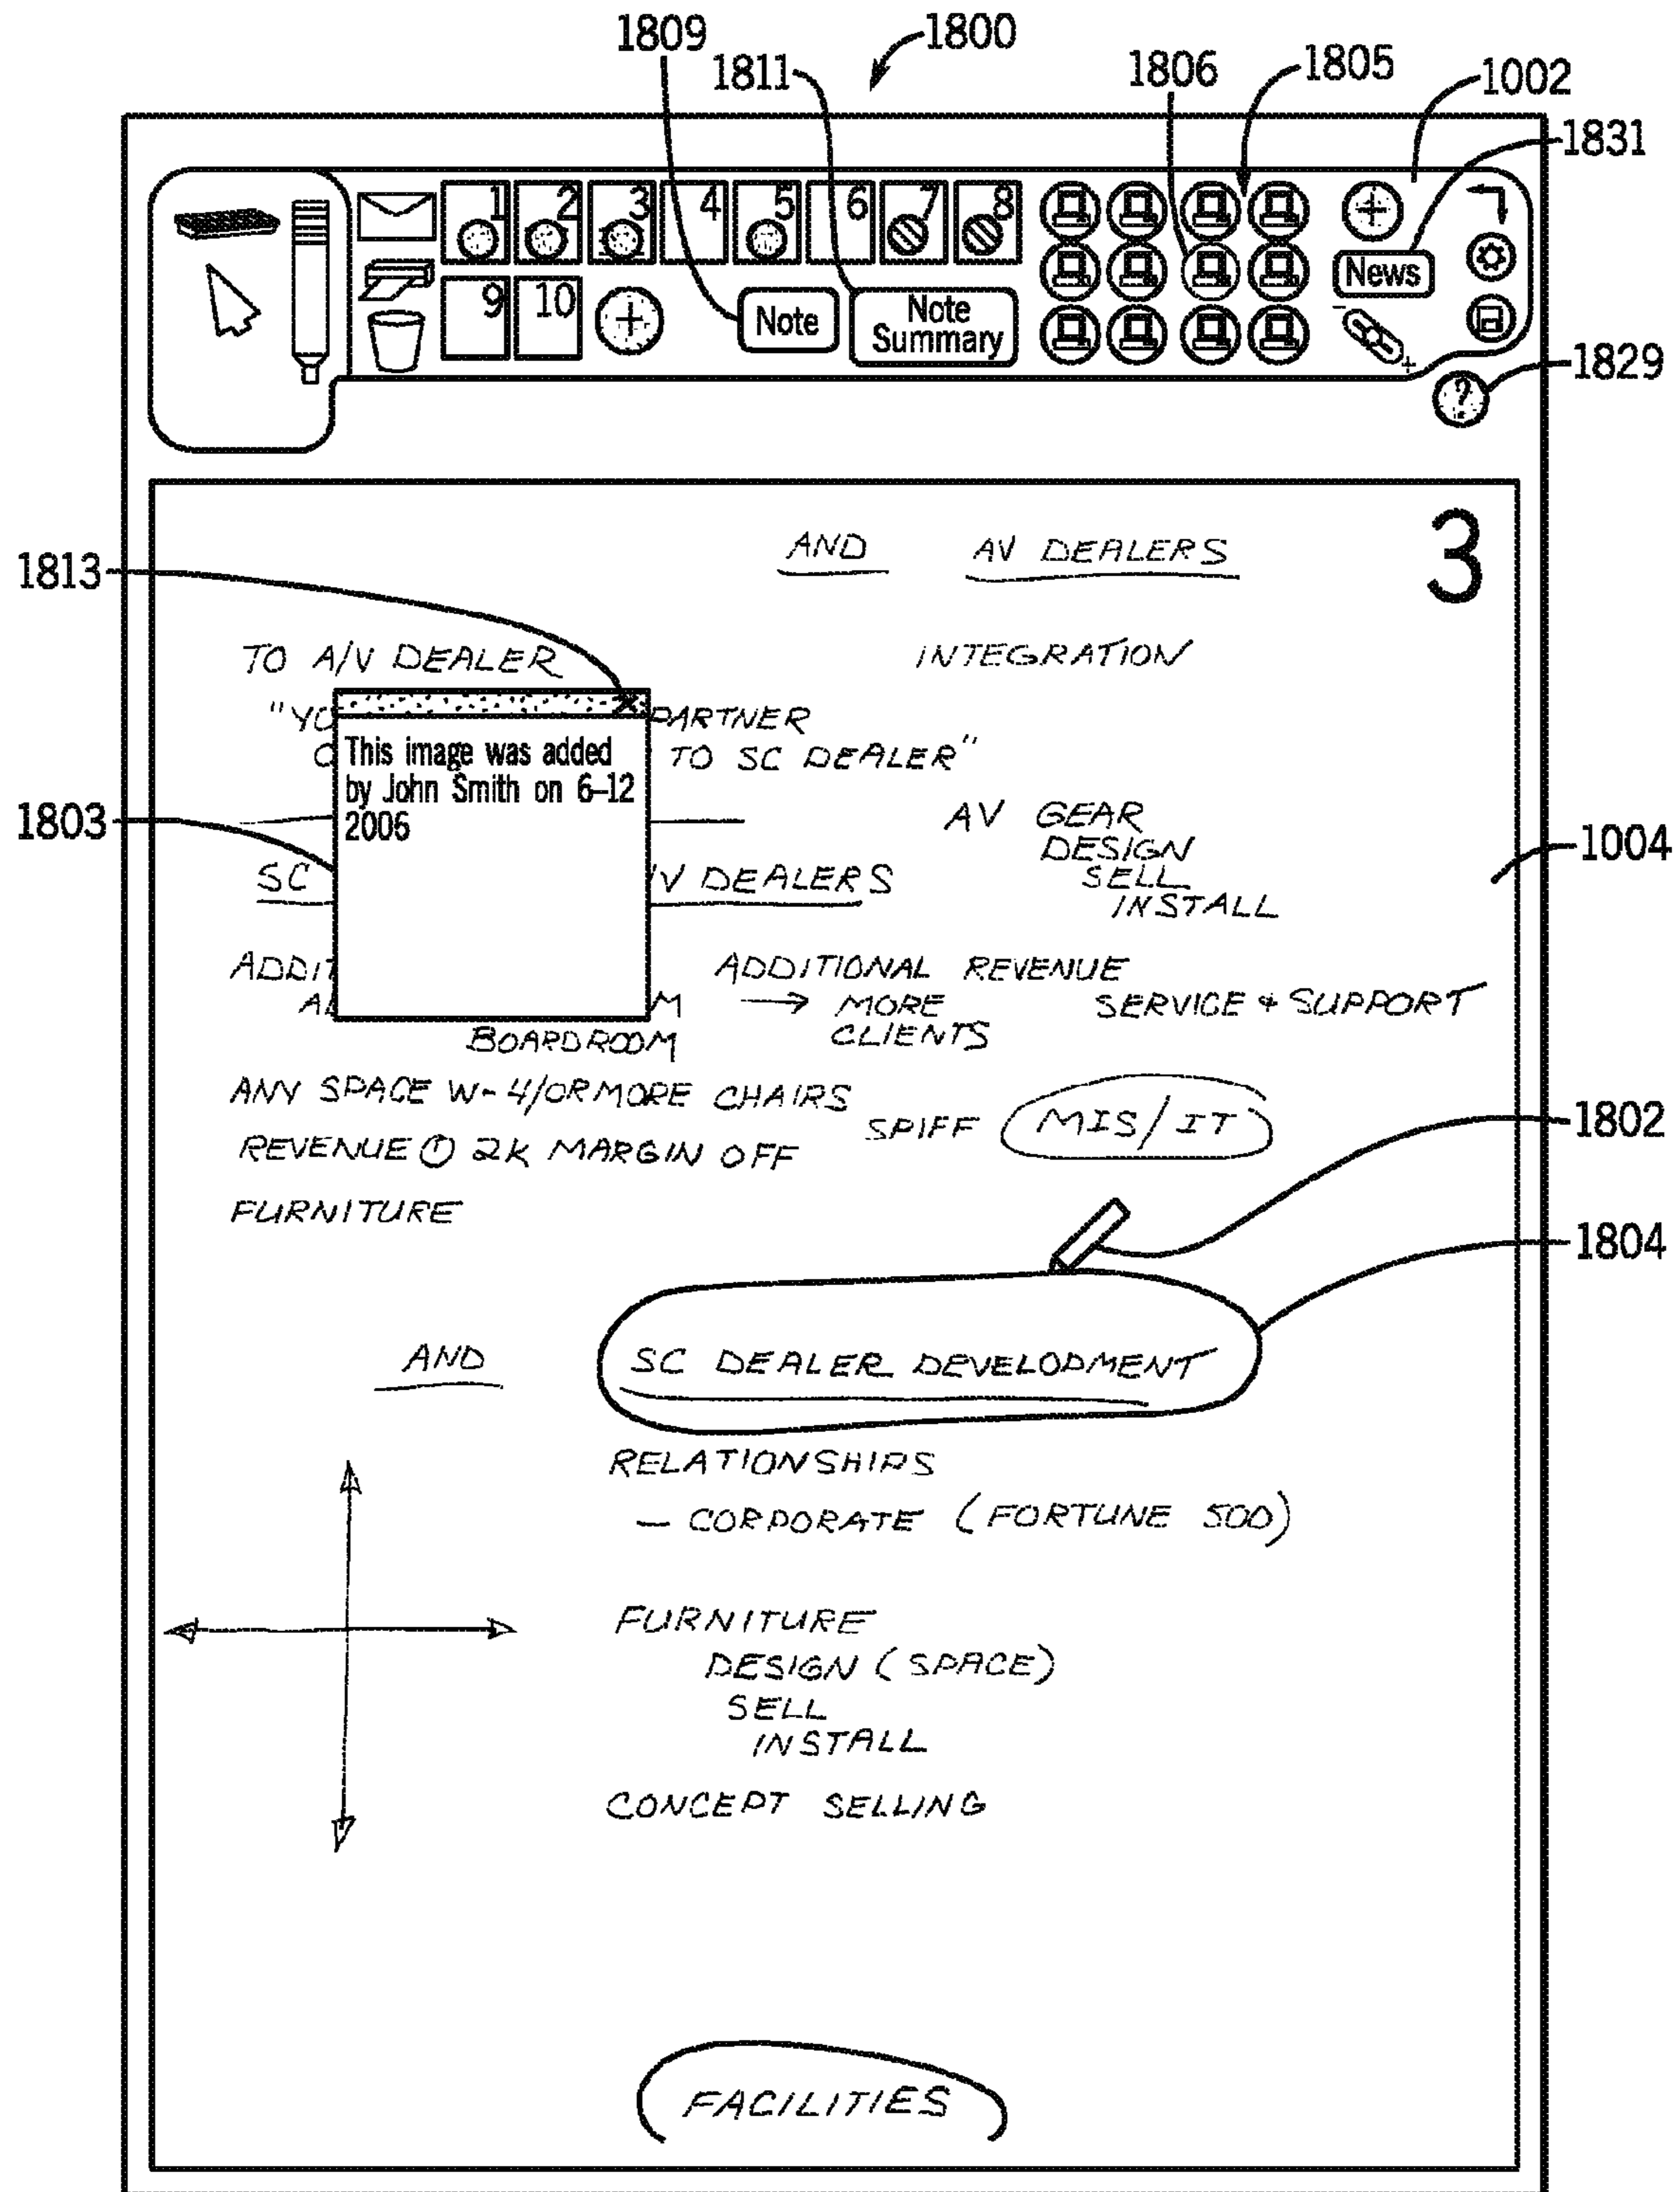 1809
1800
1811
1806
1805
1002
1831
1 2 3 4 5 6 7 8
9 10
Note
Note
Summary
News
?
1829
3
AND AV DEALERS
1813
TO A/V DEALER INTEGRATION
"YO PARTNER
TO SC DEALER"
This image was added
by John Smith on 6-12
2006
1803
AV GEAR
DESIGN
SELL
INSTALL
1004
SC V DEALERS
ADDIT ADDITIONAL REVENUE
M → MORE
CLIENTS
SERVICE & SUPPORT
BOARDROOM
ANY SPACE W- 4/OR MORE CHAIRS
SPIFF MIS/IT
REVENUE ① 2K MARGIN OFF
FURNITURE
1802
1804
AND SC DEALER DEVELOPMENT
RELATIONSHIPS
— CORPORATE (FORTUNE 500)
FURNITURE
DESIGN (SPACE)
SELL
INSTALL
CONCEPT SELLING
FACILITIES